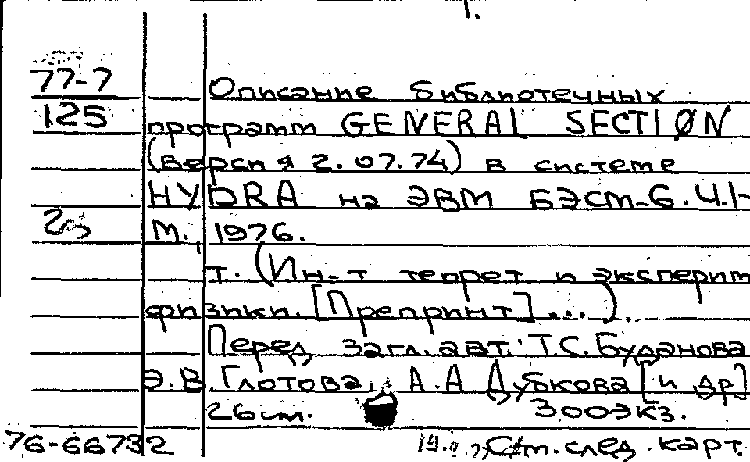 77-7
125
Описание библиотечных
программ GENERAL SECTIØN
(версия 2.07.74) в системе
HYDRA на ЭВМ БЭСМ-6. Ч.1-
М., 1976.
т. (Ин-т теорет и эксперим
физики. [Препринт]...).
Перед загл. авт.: Т.С. Буданова
Э.В. Глотова, А.А Дубкова [и др]
26 см. 300экз.
76-66732
См. след. карт.